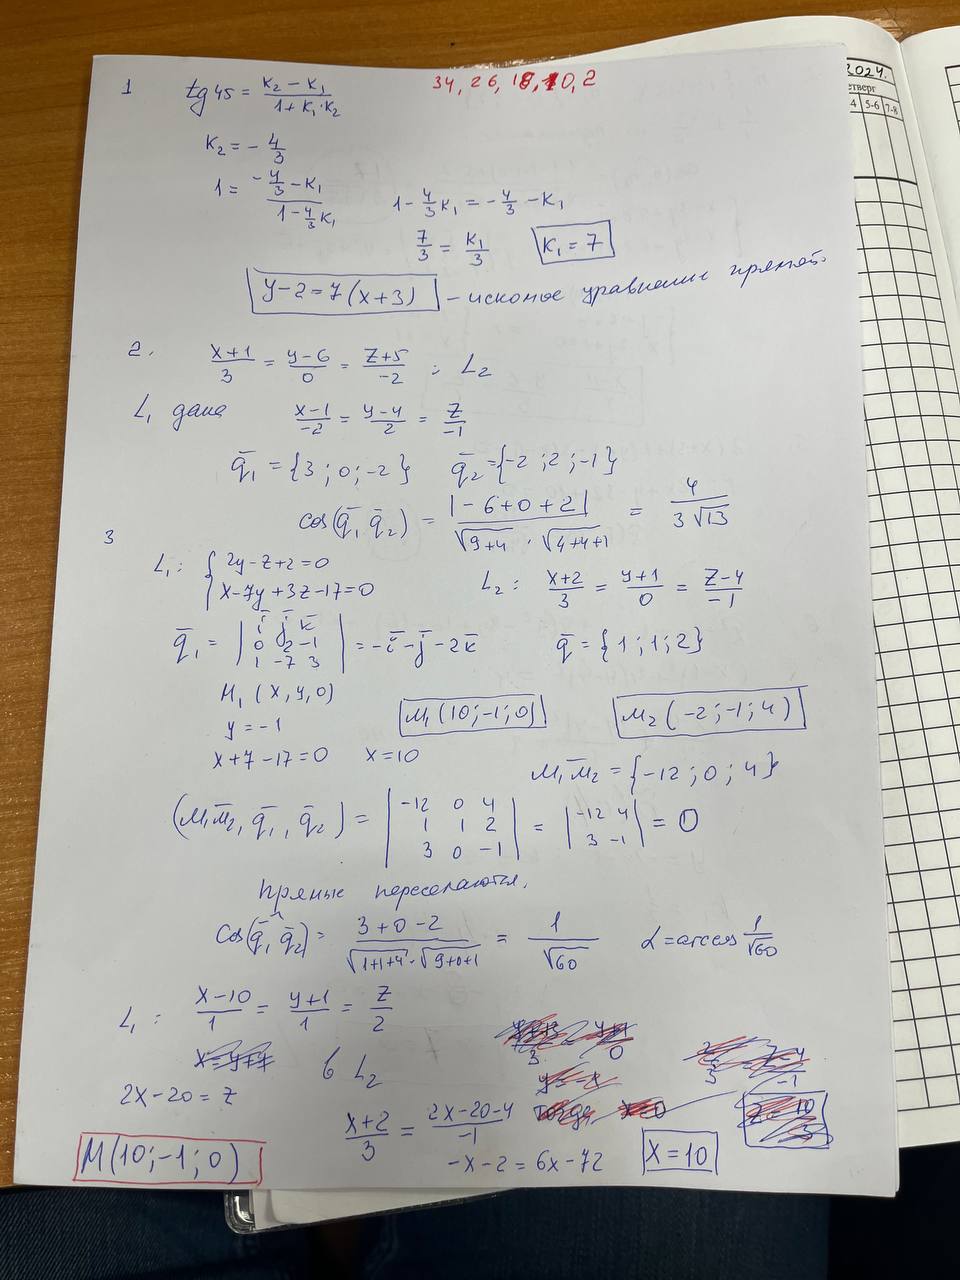 34, 26, 18, 10, 2
1 tg 45 = (K₂ - K₁)/(1 + K₁·K₂)
K₂ = -4/3
1 = (-4/3 - K₁)/(1 - 4/3 K₁)
1 - 4/3 K₁ = -4/3 - K₁
7/3 = K₁/3
K₁ = 7
y - 2 = 7(x + 3) - искомое уравнение прямой.
2. (x+1)/3 = (y-6)/0 = (z+5)/-2 ; L₂
L₁ дана (x-1)/-2 = (y-4)/2 = z/-1
q̄₁ = {3; 0; -2} q̄₂ = {-2; 2; -1}
cos(q̄₁ q̄₂) = |-6+0+2|/(√9+4 · √4+4+1) = 4/(3√13)
3
L₁: { 2y - z + 2 = 0
x - 7y + 3z - 17 = 0
L₂: (x+2)/3 = (y+1)/0 = (z-4)/-1
q̄₁ = | ī j̄ k̄
0 2 -1
1 -7 3 | = -ī - j̄ - 2k̄
q̄ = {1; 1; 2}
M₁ (x, y, 0)
y = -1
x + 7 - 17 = 0 x = 10
M₁(10; -1; 0)
M₂(-2; -1; 4)
M₁M₂ = {-12; 0; 4}
(M₁M₂, q̄₁, q̄₂) = | -12 0 4
1 1 2
3 0 -1 | = | -12 4
3 -1 | = 0
Прямые пересекаются.
cos(q̄₁ q̄₂) = (3+0-2)/(√1+1+4 · √9+0+1) = 1/√60 α = arccos 1/√60
L₁: (x-10)/1 = (y+1)/1 = z/2
2x - 20 = z
в L₂
(x+2)/3 = (2x-20-4)/-1
-x - 2 = 6x - 72
x = 10
M(10; -1; 0)
2024.
етверг
4 5-6 7-8